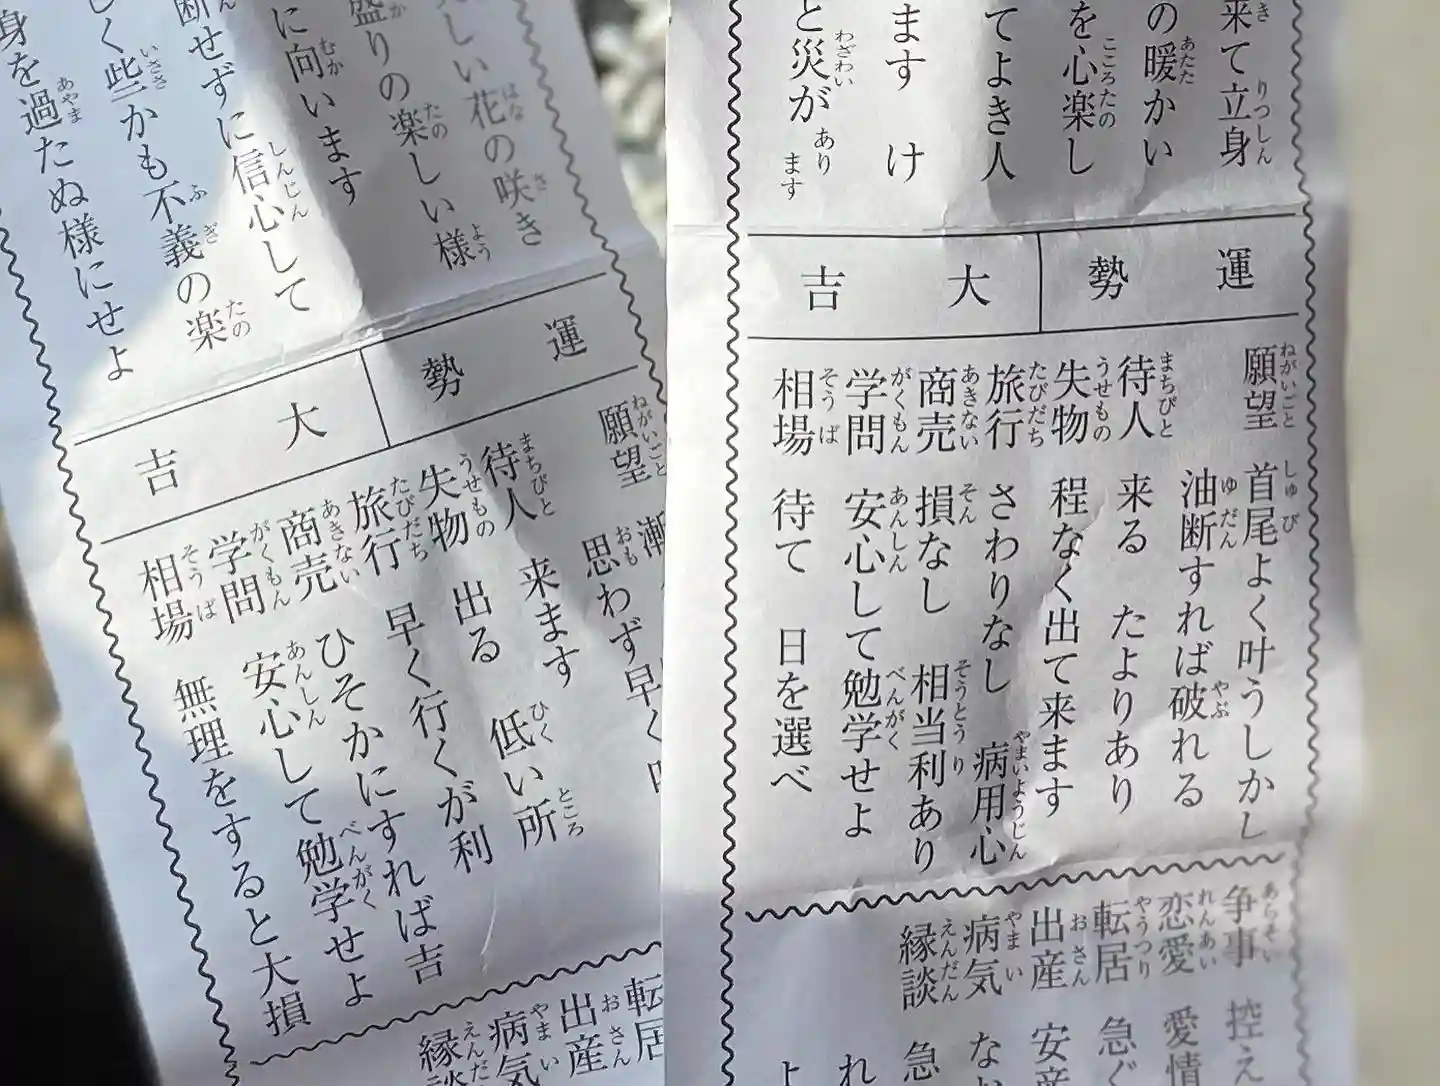 来て立身
の暖かい
を心楽し
てよき人
ます け
と災があり
ます
運勢 大吉
願望 首尾よく叶うしかし
油断すれば破れる
待人 来る たよりあり
失物 程なく出て来ます
旅行 さわりなし 病用心
商売 損なし 相当利あり
学問 安心して勉学せよ
相場 待て 日を選べ
争事 控え
恋愛 愛情
転居 急ぐ
出産 安産
病気
縁談 急
れ
しい花の咲き
盛りの楽しい様
に向います
断せずに信心して
しく些かも不義の楽
身を過たぬ様にせよ
運勢 大吉
願望
思わず早く
待人 来ます
失物 出る 低い所
旅行 早く行くが利
商売 ひそかにすれば吉
学問 安心して勉学せよ
相場 無理をすると大損
転居
出産
病気
縁談